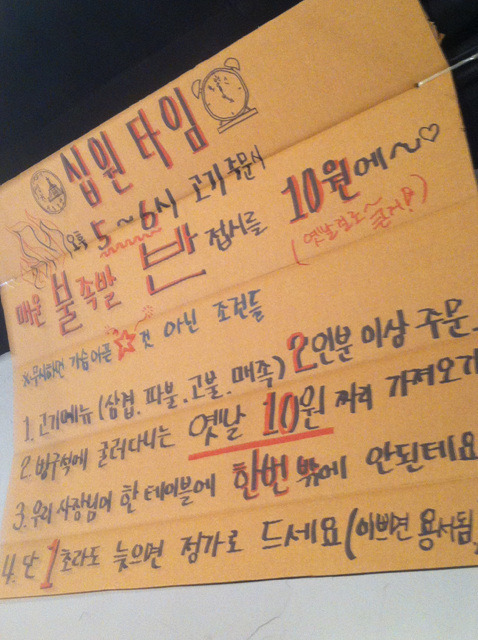 십원 타임
오후 5~6시 고기 주문시
매운 불족발 반 접시를 10원에~♡
(옛날걸로~
큰거!)
※무시하면 가슴아픈 ☆ 것 아닌 조건들
1. 고기메뉴 (삼겹. 파불. 고불. 매족) 2인분 이상 주문.
2. 방구석에 굴러다니는 옛날 10원 짜리 가져오기
3. 우리 사장님이 한 테이블에 한번 밖에 안된데요
4. 단 1초라도 늦으면 정가로 드세요 (이쁘면 용서됨